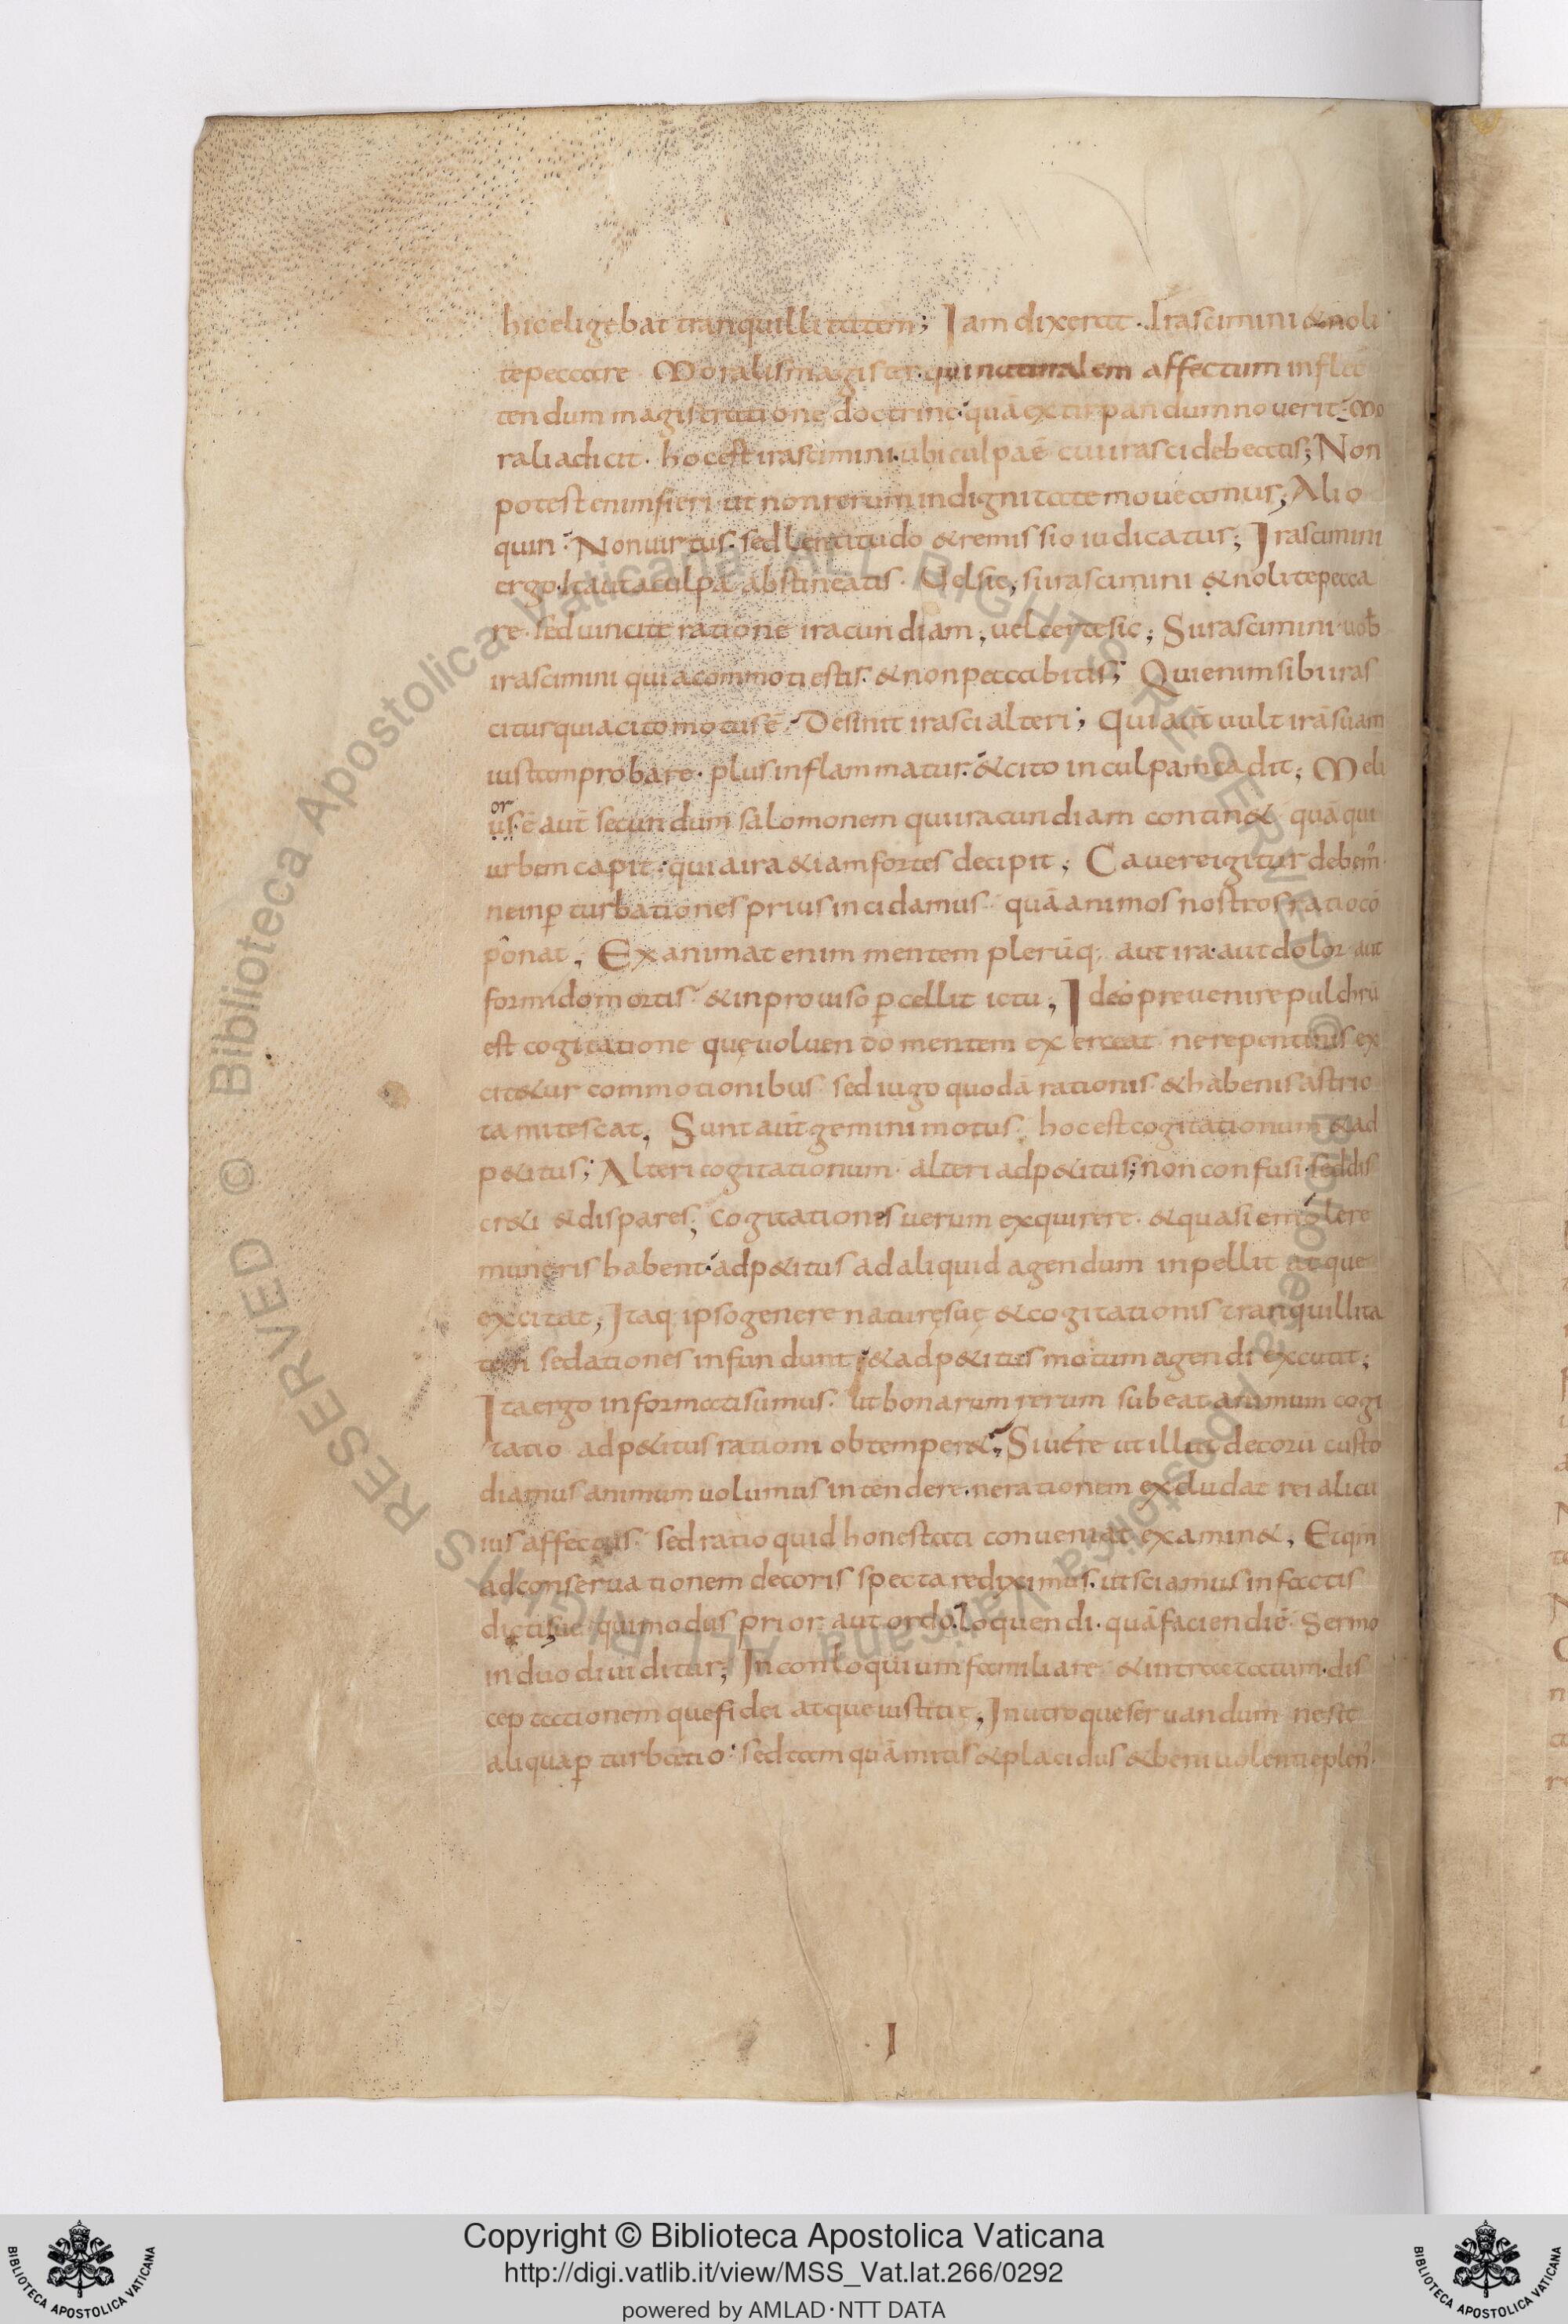 hic eligebat tranquillitatem; Iam dixerat. Irascimini & noli
te peccare. Moralis magister qui naturalem affectum inflec
tendum magis ratione doctrine quā extirpandum noverit; Mo
rali a dicit. hoc est irascimini ubi culpa ē cui irasci debeatis; Non
potest enim fieri ut non rerum indignitate moveamur; Alio
quin. Non uirtus. sed lentitudo & remissio iudicatur; Irascimini
ergo. Ita ut a culpa abstineatis. Uel sic, si irascimini & nolite pecca
re. sed uincite ratione iracundiam; uel certe sic; Si irascimini. uob̄
irascimini quia commoti estis. & non peccabitis; Qui enim sibi iras
citur quia cito motus ē. Desinit irasci alteri; Qui aut̄ uult irā suam
iustam probare. plus inflammatur. & cito in culpam cadit; Meli
or
us. ē aut̄ secundum salomonem qui iracundiam contin& quā qui
urbem capit. quia ira &iam fortes decipit; Cauere igitur debem̄
ne in p̄turbationes prius incidamus. quā animos nostros ratio cō
ponat; Exanimat enim mentem plerūq; aut ira. aut dolor. aut
formido mortis. & inprouiso p̄cellit ictu; Ideo preuenire pulchrū
est cogitatione quę uoluendo mentem exerceat. ne repentinis ex
cit&ur commotionibus. sed iugo quodā rationis & habenis astric
ta mitescat; Sunt aūt gemini motus. hoc est cogitationum & ad
p&itus; Alteri cogitationum. alteri adp&itus; non confusi. sed dis
cr&i & dispares; Cogitationes uerum exquirere. & quasi emolere
muneris habent. adp&itus ad aliquid agendum inpellit atque
excitat; Itaq; ipso genere naturę suę & cogitationis tranquillita
tem sedationes infundunt; & adp&itus motum agendi excutit;
Ita ergo informati sumus. ut bonarum rerum subeat animum cogi
tatio. adp&itus rationi obtemper&; Si uere ut illud decorū custo
diamus animum uolumus intendere. ne rationem excludat rei alicu
ius affectus. sed ratio quid honestati conueniat examin&; Et qm̄
ad conseruationem decoris spectare diximus. ut sciamus in factis
dictisue qui modus prior aut ordo. loquendi. quā faciendi ē. Sermo
in duo diuiditur; In conloquium familiare. & in tractatum. dis
ceptationemque fidei atque iustitie; In utroque seruandum ne sit
aliqua p̄turbatio. sed tam quā mitis & placidus & beniuolentie plen̄.
I
RESERVED © Biblioteca Apostolica Vaticana ALL RIGHTS RESERVED © Biblioteca Apostolica Vaticana ALL RIGHTS
Copyright © Biblioteca Apostolica Vaticana
http://digi.vatlib.it/view/MSS_Vat.lat.266/0292
powered by AMLAD·NTT DATA
BIBLIOTECA APOSTOLICA VATICANA
BIBLIOTECA APOSTOLICA VATICANA